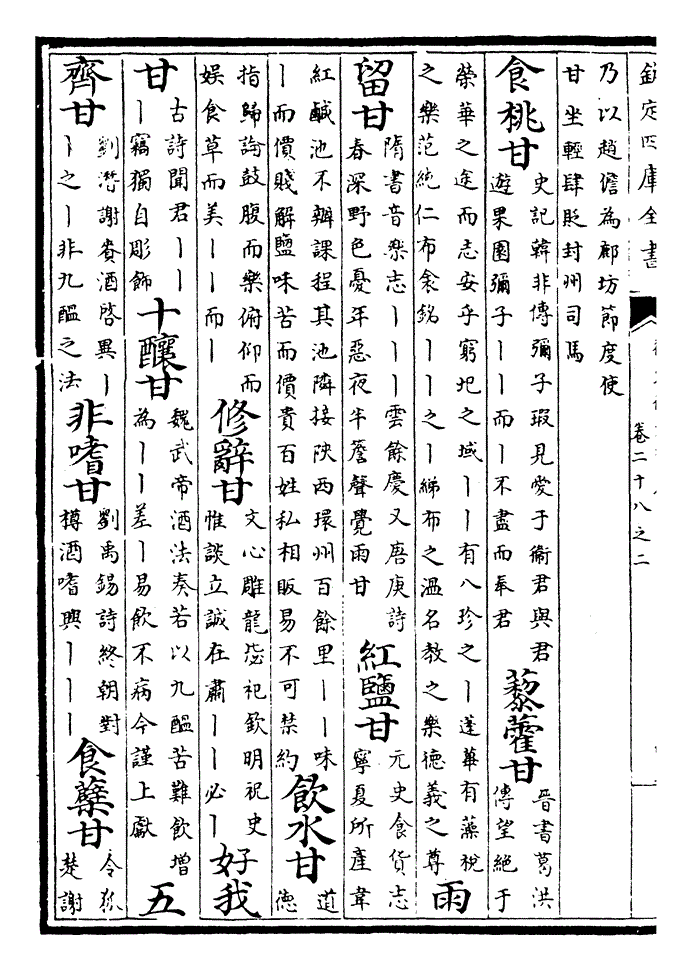 欽定四庫全書
卷二十八之二
乃以趙儋為鄜坊節度使
甘坐輕肆貶封州司馬
食桃甘
史記韓非傳彌子瑕見愛于衞君與君
遊果園彌子丨丨而丨不盡而奉君
藜藿甘
晉書葛洪
傳望絶于
榮華之途而志安乎窮圯之域丨丨有八珍之丨蓬蓽有藻梲
之樂范純仁布衾銘丨丨之丨綈布之溫名教之樂德義之尊
雨
留甘
隋書音樂志丨丨丨雲餘慶又唐庚詩
春深野色憂年惡夜半簷聲覺雨甘
紅鹽甘
元史食貨志
寧夏所產韋
紅鹹池不辦課程其池隣接陜西環州百餘里丨丨味
丨而價賤解鹽味苦而價貴百姓私相販易不可禁約
飲水甘
道
德
指歸論鼓腹而樂俯仰而
娱食草而美丨丨而丨
修辭甘
文心雕龍毖祀欽明祝史
惟談立誠在肅丨丨必丨
好我
甘
古詩聞君丨丨
丨竊獨自彫飾
十釀甘
魏武帝酒法奏若以九醖苦難飲增
為丨丨差丨易飲不病今謹上獻
五
齊甘
劉潛謝賚酒啓異丨
丨之丨非九醖之法
非嗜甘
劉禹錫詩終朝對
樽酒嗜興丨丨丨
食蘖甘
令狐
楚謝